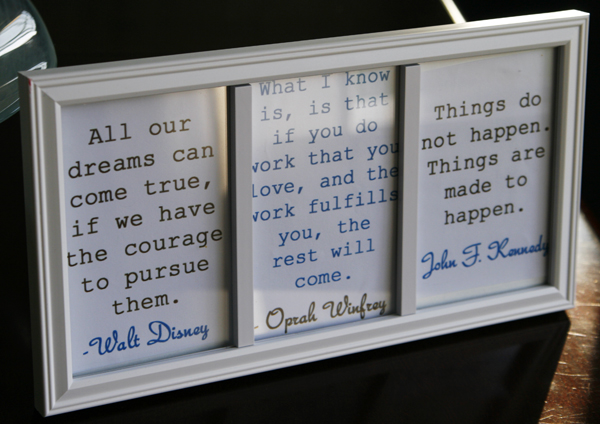 All our
dreams can
come true,
if we have
the courage
to pursue
them.
-Walt Disney
What I know
is, is that
if you do
work that you
love, and the
work fulfills
you, the
rest will
come.
- Oprah Winfrey
Things do
not happen.
Things are
made to
happen.
John F. Kennedy